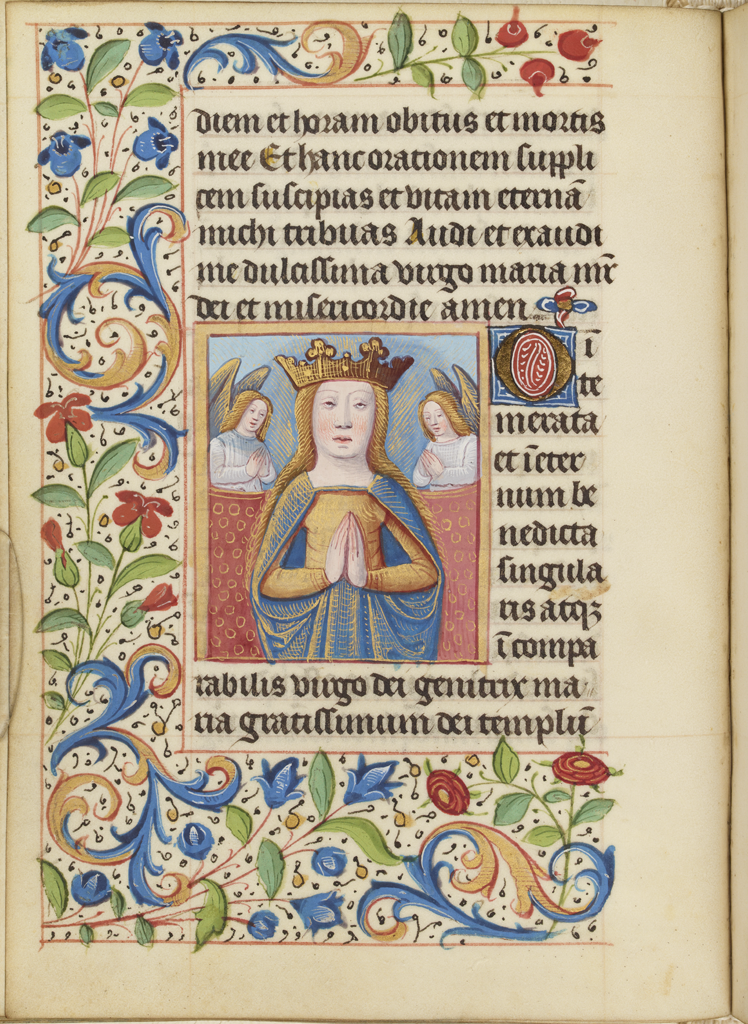 diem et horam obitus et mortis
mee Et hanc orationem suppli
cem suscipias et vitam eternā
michi tribuas Audi et exaudi
me dulcissima virgo maria mr̄
dei et misericordie amen
O i
te
merata
et īeter
num be
nedicta
singula
ris atqꝫ
īcompa
rabilis virgo dei genitrix ma
ria gratissimum dei templū